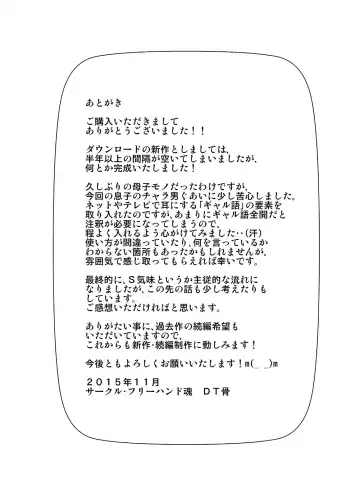 あとがき
ご購入いただきまして
ありがとうございました！！
ダウンロードの新作としましては、
半年以上の間隔が空いてしまいましたが、
何とか完成いたしました！
久しぶりの母子モノだったわけですが、
今回の息子のチャラ男ぐあいに少し苦心しました。
ネットやテレビで耳にする「ギャル語」の要素を
取り入れたのですが、あまりにギャル語全開だと
注釈が必要になってしまうので、
程よく入れるよう心がけてみました・・(汗)
使い方が間違っていたり、何を言っているか
わからない箇所もあったかもしれませんが、
雰囲気で感じ取ってもらえれば幸いです。
最終的に、Ｓ気味というか主従的な流れに
なりましたが、この先の話も少し考えたりも
しています。
ご感想いただければと思います。
ありがたい事に、過去作の続編希望も
いただいていますので、
これからも新作・続編制作に勤しみます！
今後ともよろしくお願いいたします！m(_ _)m
２０１５年１１月
サークル・フリーハンド魂　ＤＴ骨